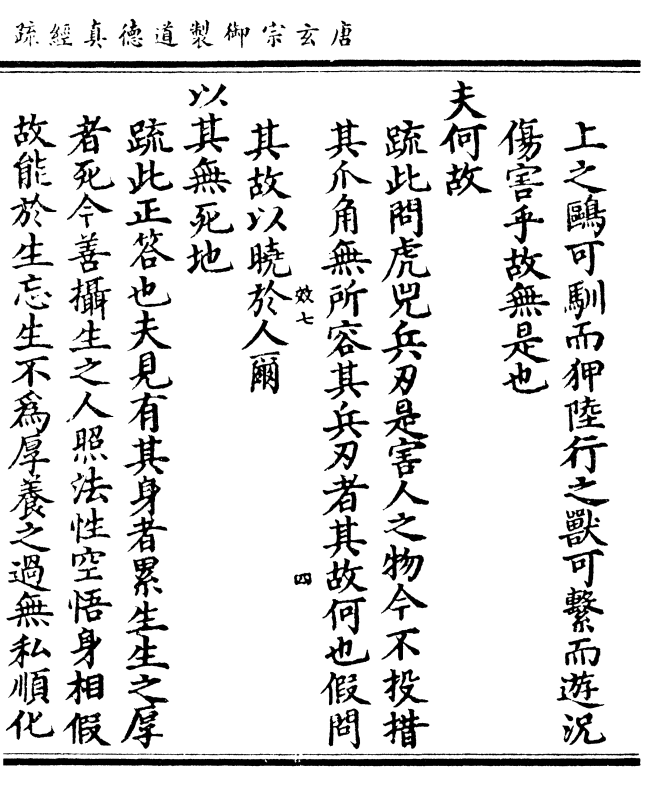 唐玄宗御製道德真經疏
上之鷗可馴而狎陸行之獸可繫而遊況
傷害乎故無是也
夫何故
疏此問虎兕兵刃是害人之物今不投措
其爪角無所容其兵刃者其故何也假問
其故以曉於人爾
效七
四
以其無死地
疏此正答也夫見有其身者累生生之厚
者死今善攝生之人照法性空悟身相假
故能於生忘生不為厚養之過無私順化